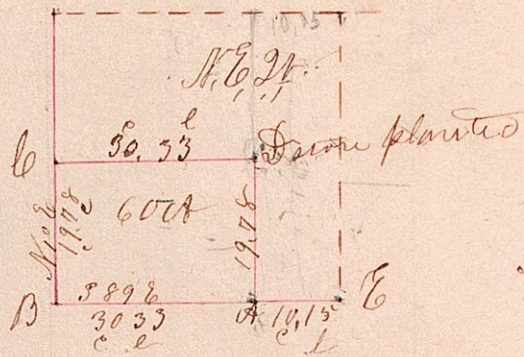 10,15
N.E. Qr.
c l
30.33
C
D stone planted
N 1° E
19.78
c
60 A
19.78
B
S 89 E
30 33
c l
A
10,15
c l
E